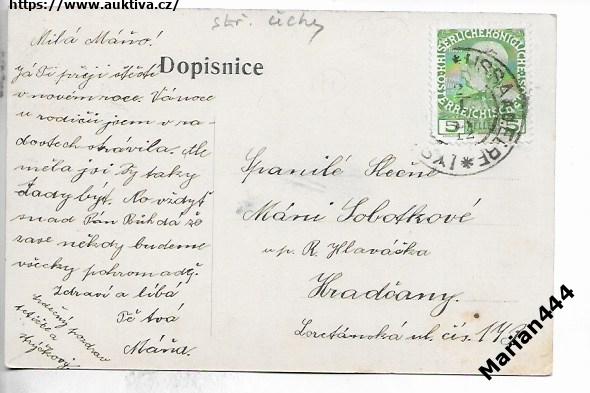 https://www.auktiva.cz/
Milá Máňo!
Já Ti přeji štěstí
v novém roce. Vánoce
u rodičů jsem v ra-
dostech strávila. Ale
měla jsi Ty taky
tady být. No vždyť
snad Pán Bůh dá že
zase někdy budeme
všecky pohromadě.
Zdraví a líbá
Tě tvá
Máňa.
Srdečný pozdrav
tetičce a
strýčkovi
skř. Úchy
Dopisnice
Spanilé Slečně
Máni Sobotkové
u p. R. Hlaváčka
Hradčany.
Loretánská ul. čís. 173
5
Marian444